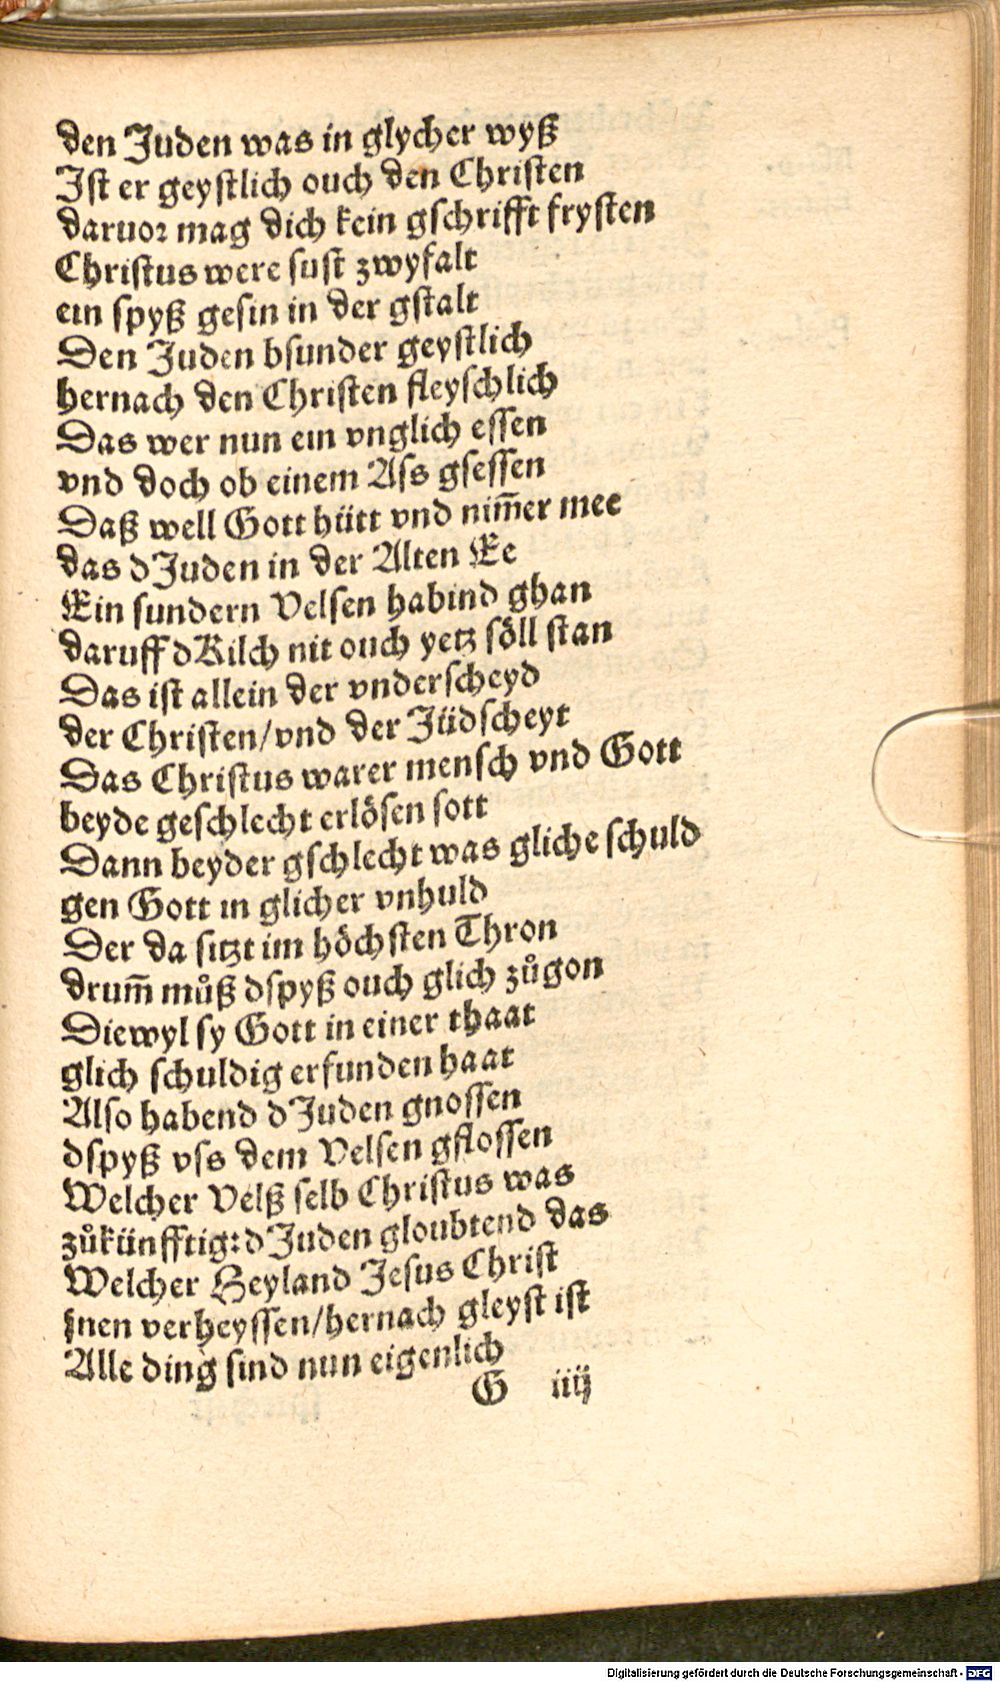 den Juden was in glycher wyß
Ist er geystlich ouch den Christen
daruor mag dich kein gschrifft frysten
Christus were sust zwyfalt
ein spyß gesin in der gstalt
Den Juden bsunder geystlich
hernach den Christen fleyschlich
Das wer nun ein vnglich essen
vnd doch ob einem Ass gsessen
Daß well Gott hütt vnd nim̃er mee
das dJuden in der Alten Ee
Ein sundern Velsen habind ghan
daruff dKilch nit ouch yetz söll stan
Das ist allein der vnderscheyd
der Christen/vnd der Jüdscheyt
Das Christus warer mensch vnd Gott
beyde geschlecht erlösen sott
Dann beyder gschlecht was gliche schuld
gen Gott in glicher vnhuld
Der da sitzt im höchsten Thron
drum̃ můß dspyß ouch glich zůgon
Diewyl sy Gott in einer thaat
glich schuldig erfunden haat
Also habend dJuden gnossen
dspyß vss dem Velsen gflossen
Welcher Velß selb Christus was
zůkünfftig:dJuden gloubtend das
Welcher Heyland Jesus Christ
jnen verheyssen/hernach gleyst ist
Alle ding sind nun eigenlich
G iiij
Digitalisierung gefördert durch die Deutsche Forschungsgemeinschaft - DFG